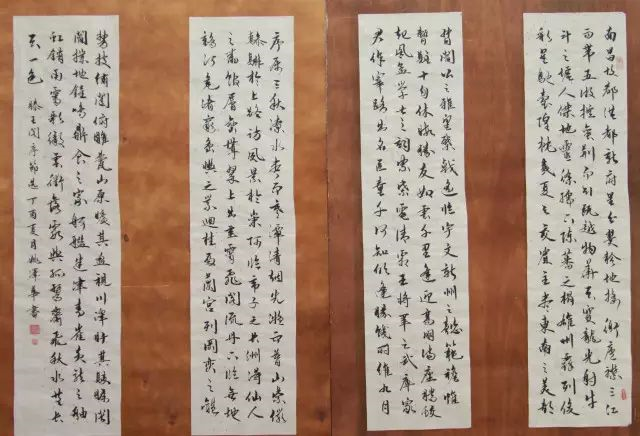 南昌故郡洪都新府星分翼軫地接衡廬襟三江
而帶五湖控蠻荆而引甌越物華天寶龍光射牛
斗之墟人傑地靈徐孺下陳蕃之榻雄州霧列俊
彩星馳臺隍枕夷夏之交賓主盡東南之美都
督閻公之雅望棨戟遥臨宇文新州之懿範襜帷
暫駐十旬休暇勝友如雲千里逢迎高朋滿座騰蛟
起鳳孟學士之詞宗紫電清霜王將軍之武庫家
君作宰路出名區童子何知躬逢勝餞時維九月
序屬三秋潦水盡而寒潭清烟光凝而暮山紫儼
驂騑於上路訪風景於崇阿臨帝子之長洲得仙人
之舊館層巒聳翠上出重霄飛閣流丹下臨無地
鶴汀鳧渚窮島嶼之縈迴桂殿蘭宮列岡巒之體
勢披繡闥俯雕甍山原曠其盈視川澤紆其駭矚閭
閻撲地鐘鳴鼎食之家舸艦迷津青雀黃龍之舳
虹銷雨霽彩徹雲衢落霞與孤鶩齊飛秋水共長
天一色 滕王閣序節選 丁酉夏月姚澤華書